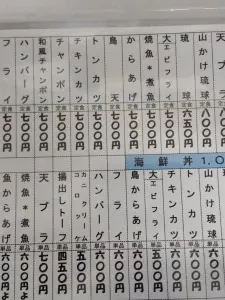 山かけ琉球 定食 七〇〇円
琉球 定食 六五〇円
大エビフライ 定食 七〇〇円
焼魚*煮魚 定食 七〇〇円
からあげ 定食 七〇〇円
鳥天 定食 七〇〇円
トンカツ 定食 七〇〇円
チキンカツ 定食 七〇〇円
チャンポン 定食 七〇〇円
和風チャンポン 定食 七〇〇円
ハンバーグ 定食 七〇〇円
フライ 定食 七〇〇円
海鮮丼 1,0
山かけ琉球 単品 六〇〇円
トンカツ 単品 六〇〇円
チキンカツ 単品 六〇〇円
大エビフライ 単品 六〇〇円
鳥からあげ 単品 六〇〇円
フライ 単品 六〇〇円
ハンバーグ 単品 六〇〇円
カニクリームコロッケ 単品
揚出しトーフ 単品 四五〇円
天プラ 単品 七〇〇円
焼魚*煮魚 単品 六〇〇円よ
魚からあげ 単品 六〇〇円よ